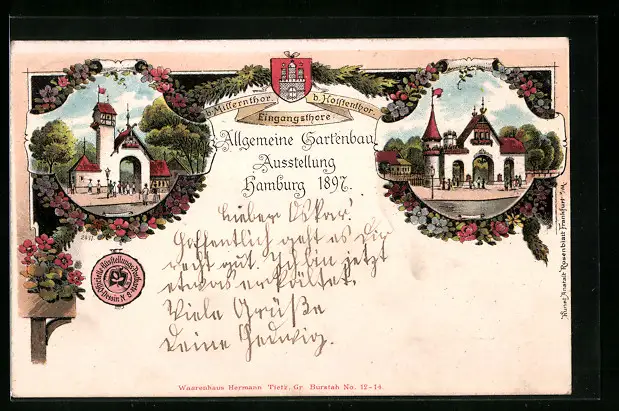 b. Millernthor.
b. Holstenthor.
Eingangsthore.
Allgemeine Gartenbau
Ausstellung
Hamburg 1897.
Lieber Oskar!
Hoffentlich geht es Dir
recht gut. Ich bin jetzt
etwas erkältet.
Viele Grüße
Deine Hedwig.
Officielle Ausstellungs-Postkarte
Verein
Kunst Anstalt Rosenblatt Frankfurt a/M.
Waarenhaus Hermann Tietz, Gr. Burstah No. 12-14